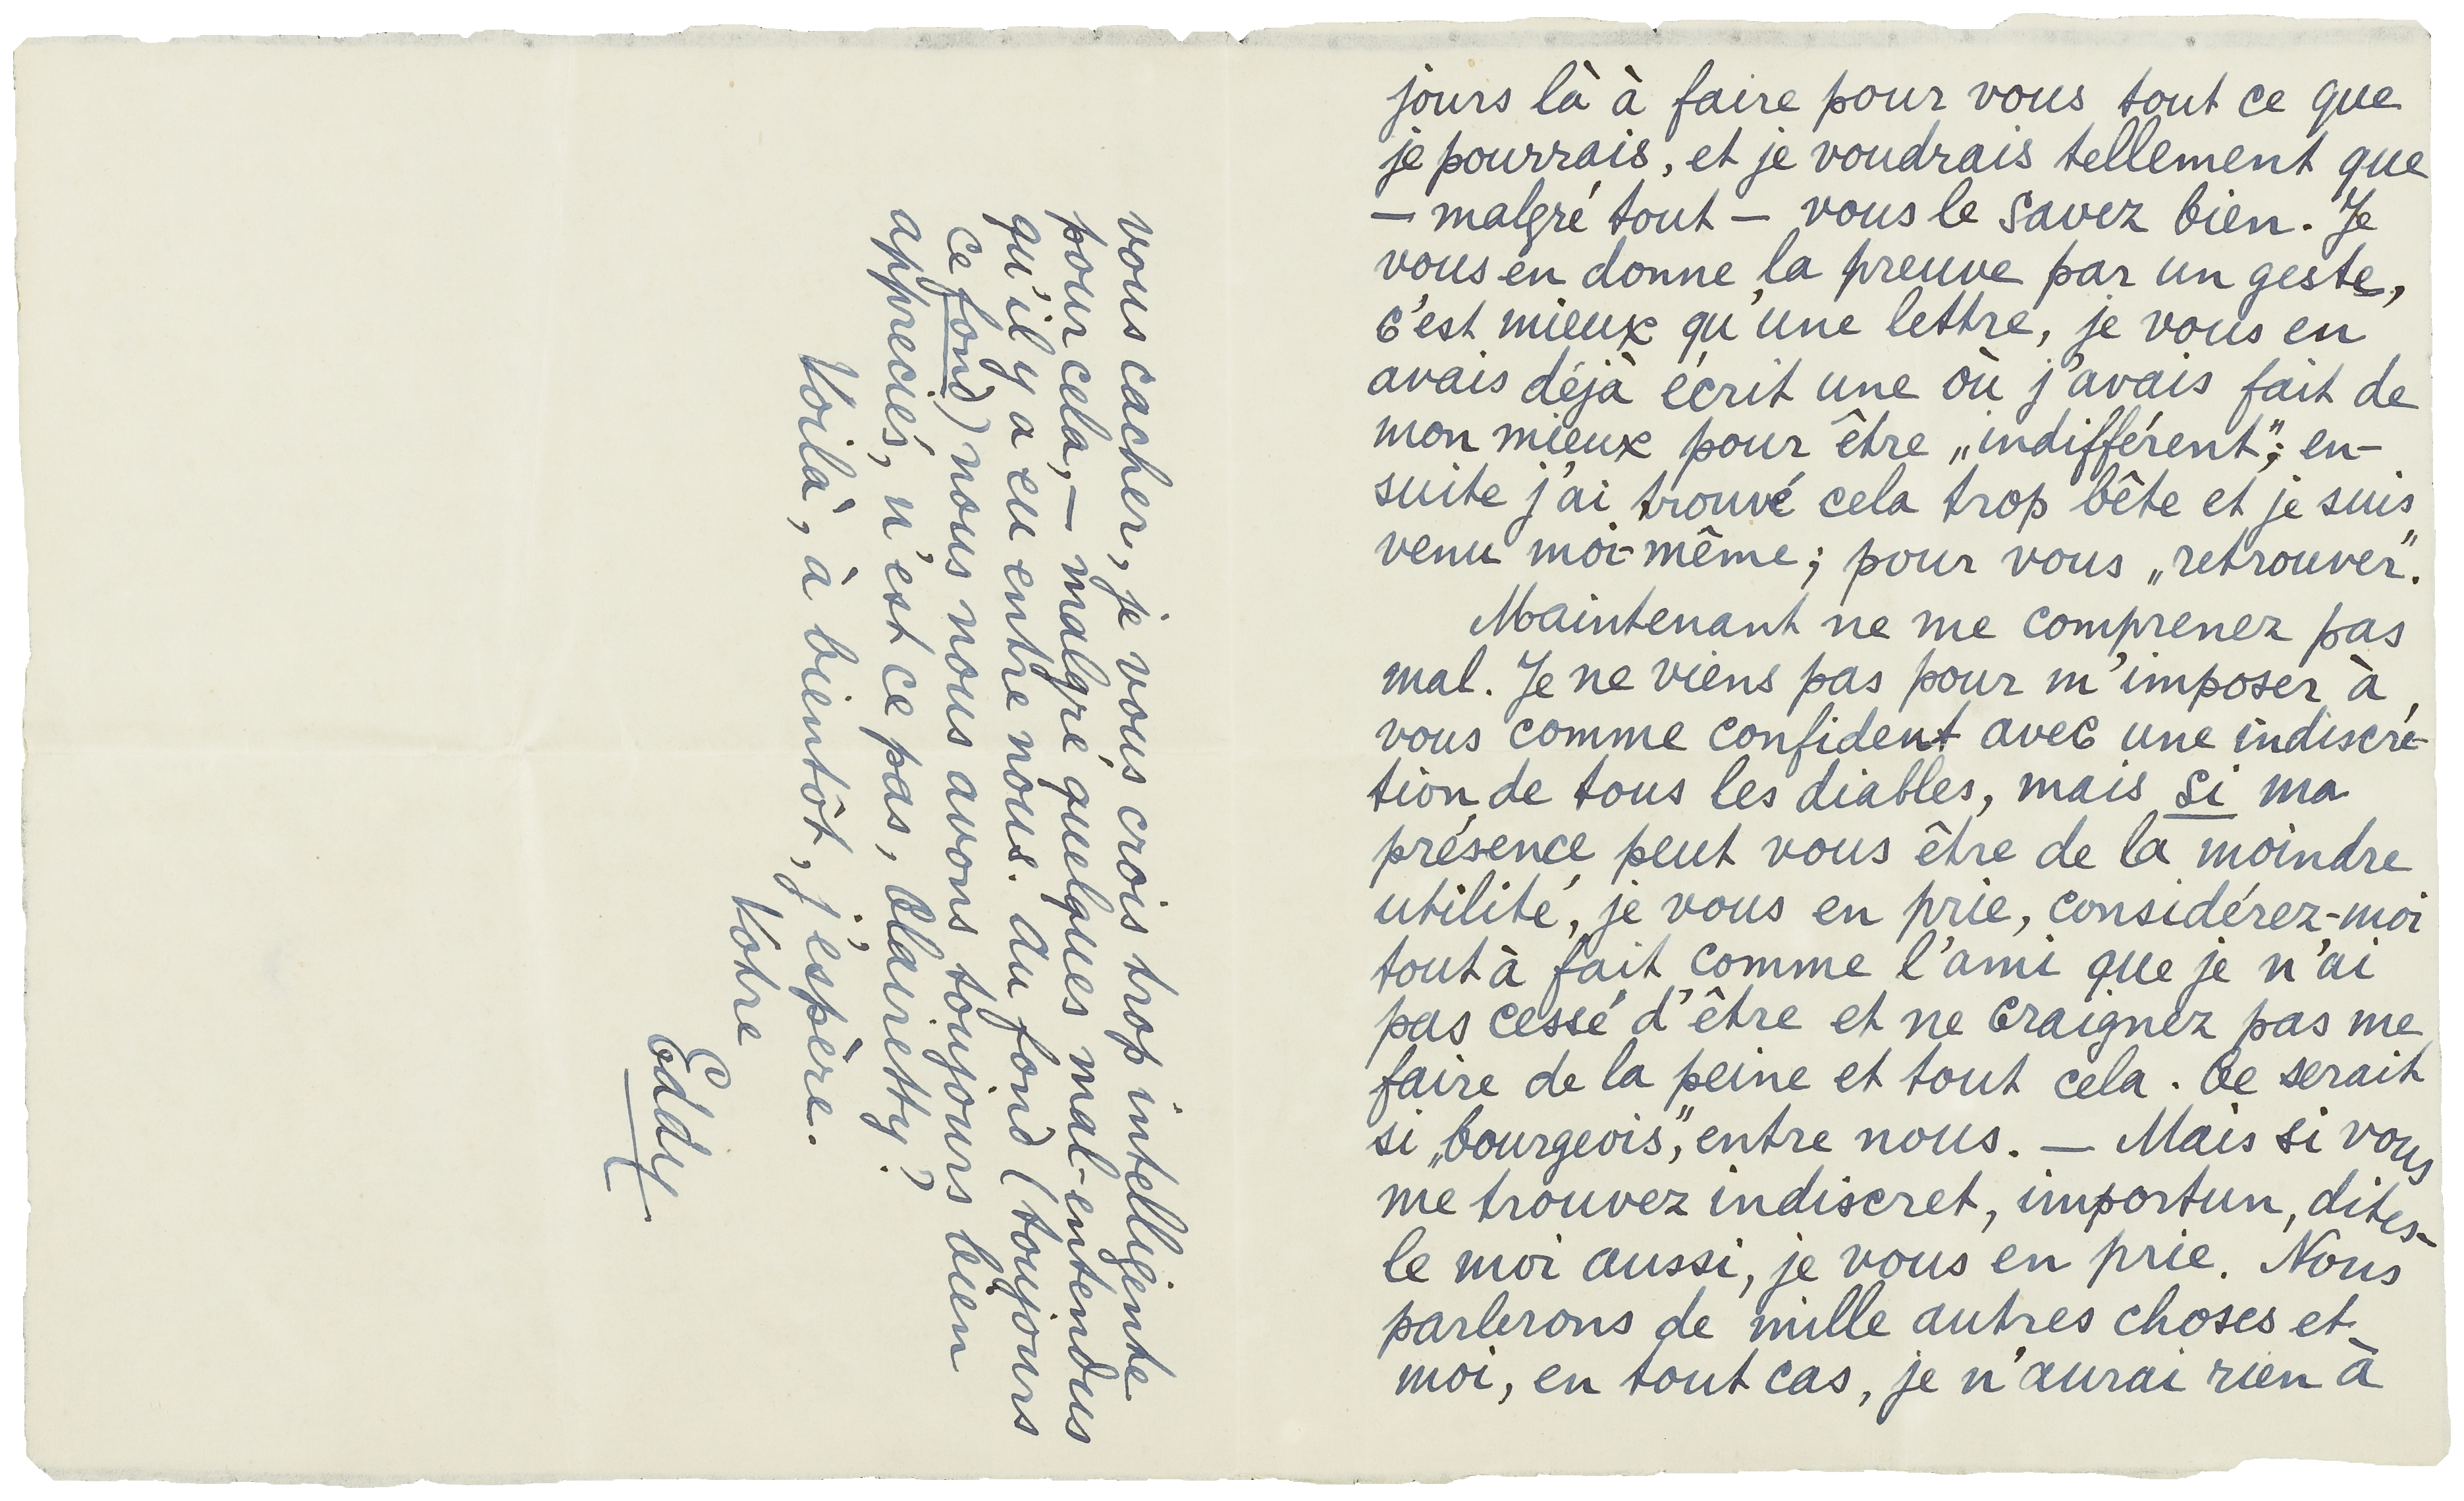 jours là à faire pour vous tout ce que
je pourrais, et je voudrais tellement que
— malgré tout — vous le savez bien. Je
vous en donne la preuve par un geste,
c'est mieux qu'une lettre, je vous en
avais déjà écrit une où j'avais fait de
mon mieux pour être „indifférent”; en-
suite j'ai trouvé cela trop bête et je suis
venu moi-même; pour vous „retrouver”.
Maintenant ne me comprenez pas
mal. Je ne viens pas pour m'imposer à
vous comme confident avec une indiscré-
tion de tous les diables, mais si ma
présence peut vous être de la moindre
utilité, je vous en prie, considérez-moi
tout à fait comme l'ami que je n'ai
pas cessé d'être et ne craignez pas me
faire de la peine et tout cela. Ce serait
si „bourgeois”, entre nous. — Mais si vous
me trouvez indiscret, importun, dites-
le moi aussi, je vous en prie. Nous
parlerons de mille autres choses et
moi, en tout cas, je n'aurai rien à
vous cacher, je vous crois trop intelligente
pour cela, — malgré quelques mal-entendus
qu'il y a eu entre nous. Au fond (toujours
ce fond) nous nous avons toujours bien
appreciés, n'est ce pas, Clairetty?
Voilà, à bientôt, j'espère.
Votre
Eddy